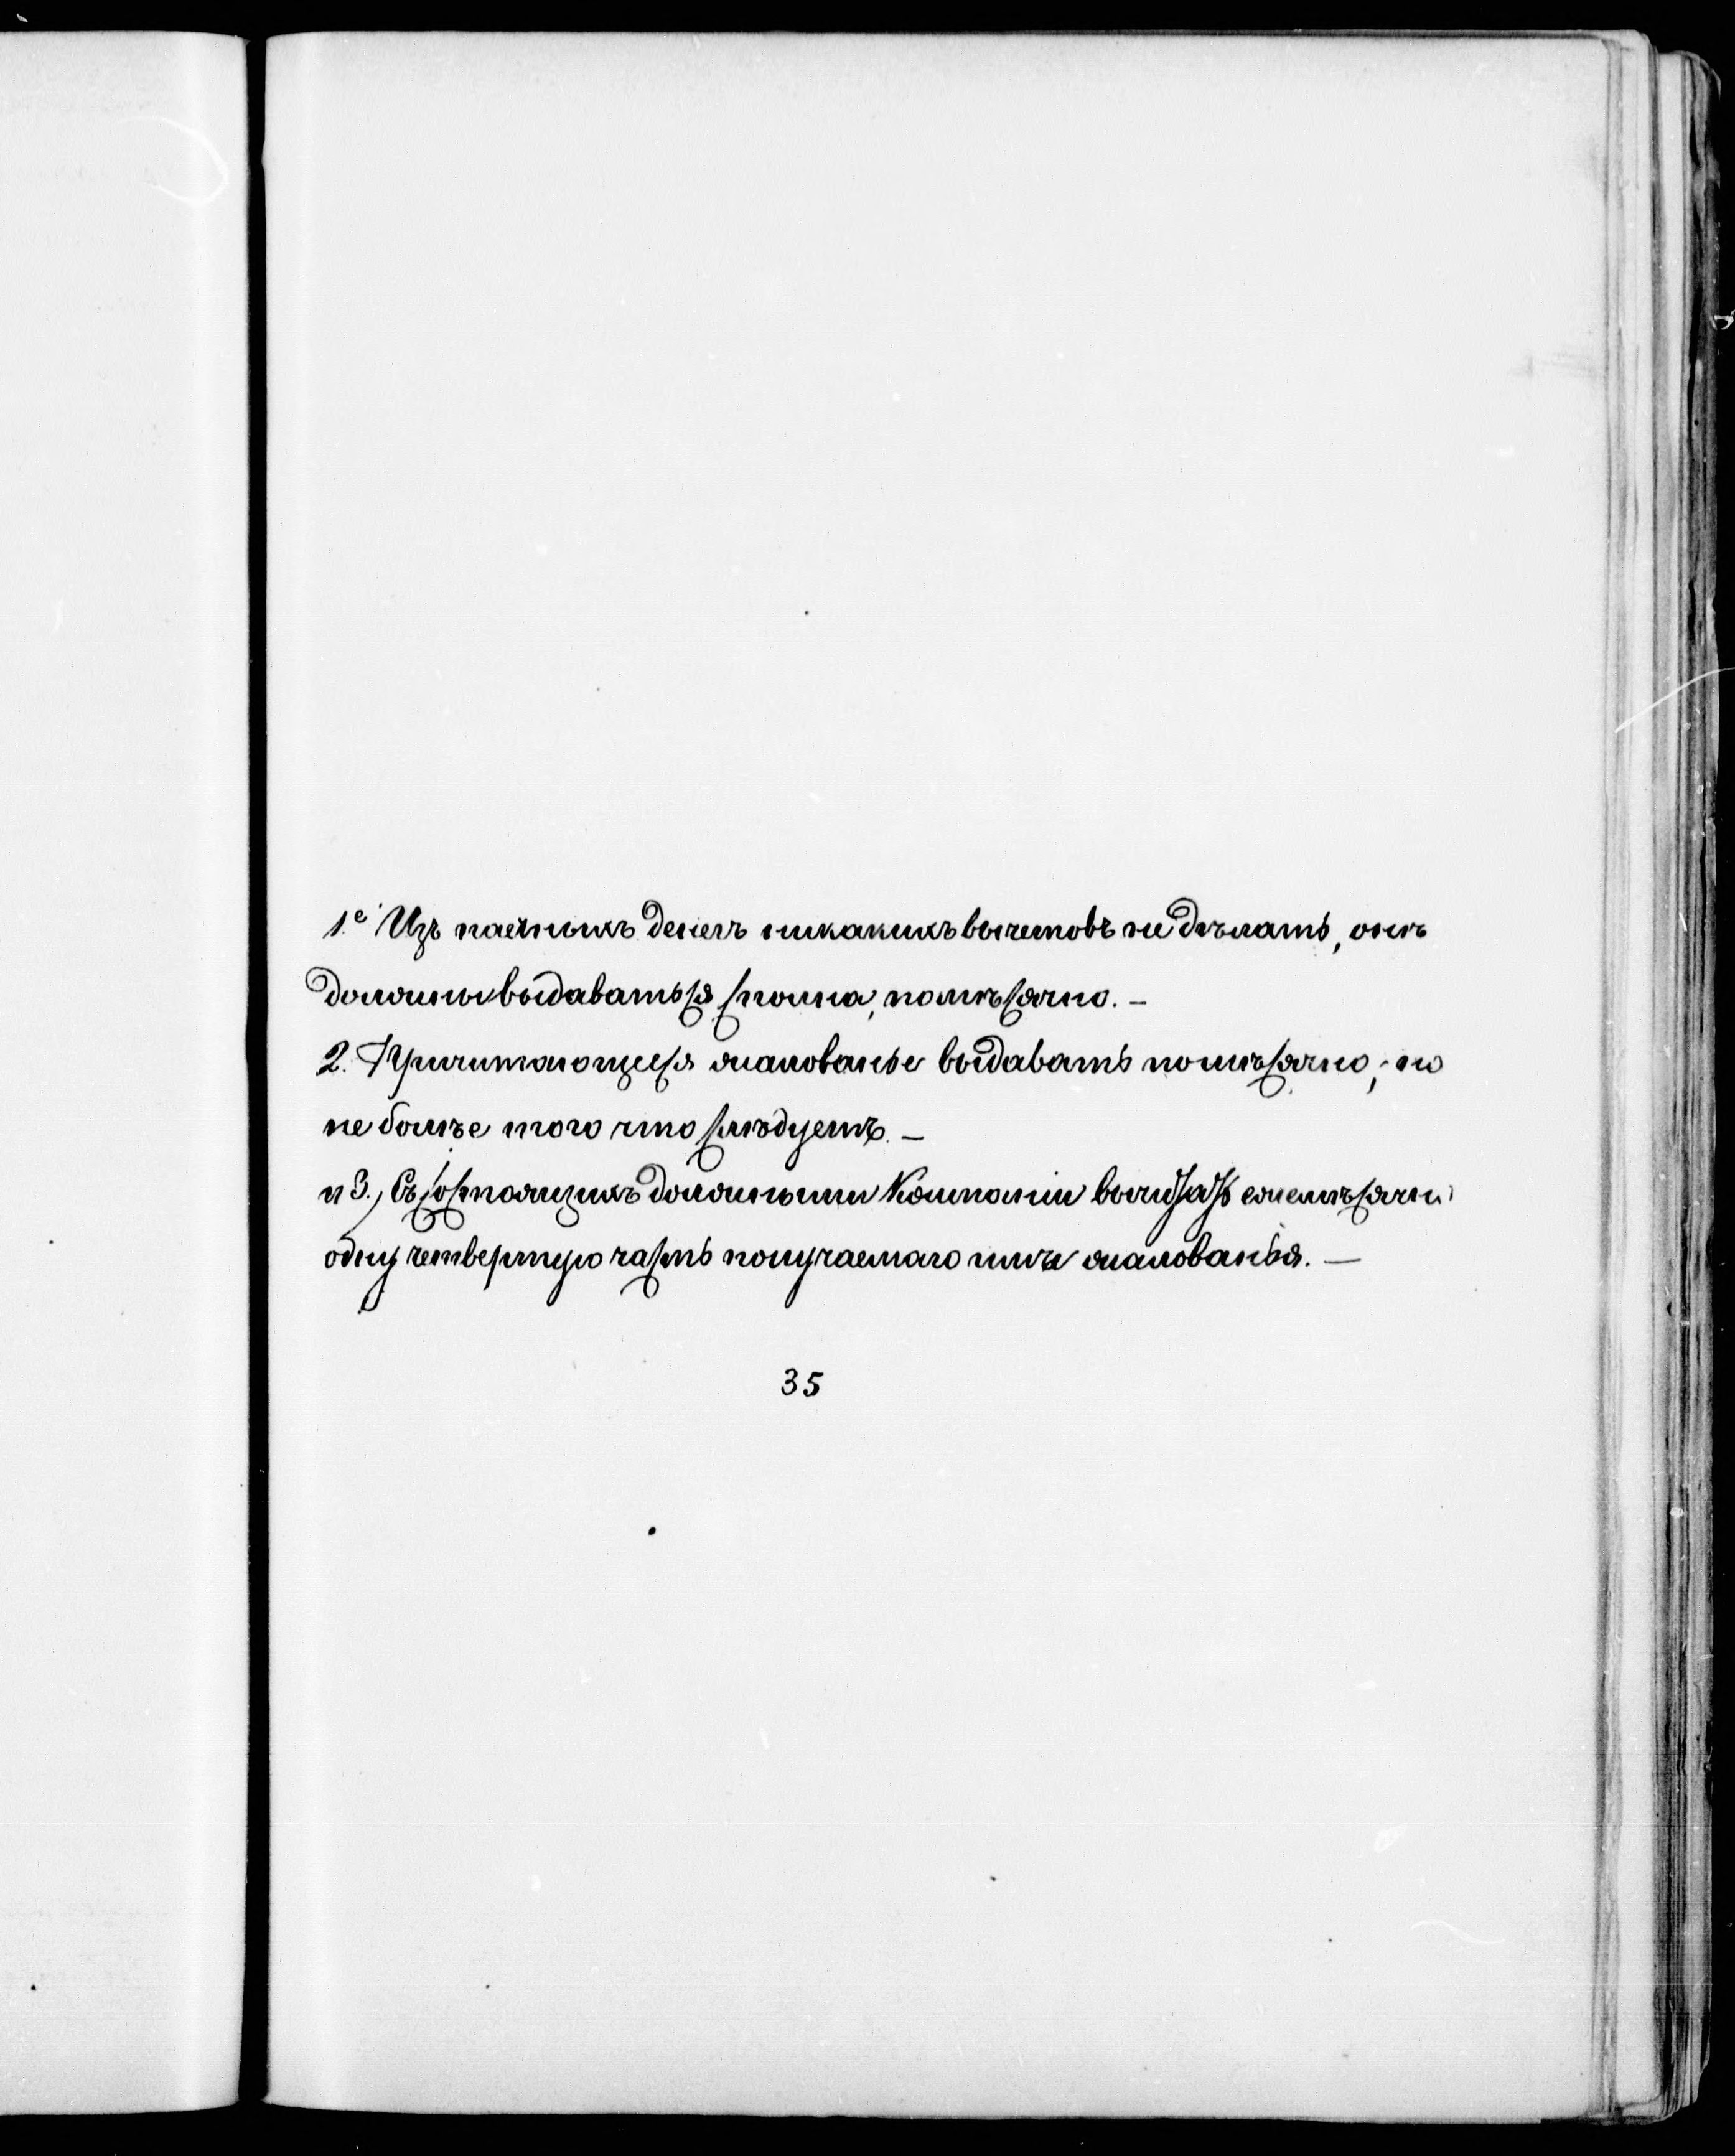 1.е Изъ паечныхъ денегъ никакихъ вычетовъ не дѣлать, онѣ
должны выдаваться сполна, помѣсячно. –
2. Причитающееся жалованье выдавать помѣсячно; но
не болѣе того что слѣдуетъ. –
и 3., Съ состоящихъ должными Компаніи вычитать ежемѣсячно
одну четвертую часть получаемаго ими жалованья. –
35